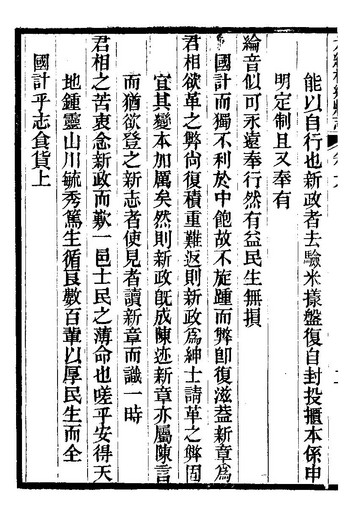 能以自行也新政者去驗米樣盤復自封投櫃本係申
明定制且又奉有
綸音似可永遠奉行然有益民生無損
國計而獨不利於中飽故不旋踵而弊卽復滋益新章爲
君相欲革之弊尙復積重難返則新政爲紳士請革之弊固
宜其變本加厲矣然則新政旣成陳迹新章亦屬陳言
而猶欲登之新志者使見者讀新章而識一時
君相之苦衷念新政而歎一邑士民之薄命也嗟乎安得天
地鍾靈山川毓秀篤生循良數百輩以厚民生而全
國計乎志食貨上